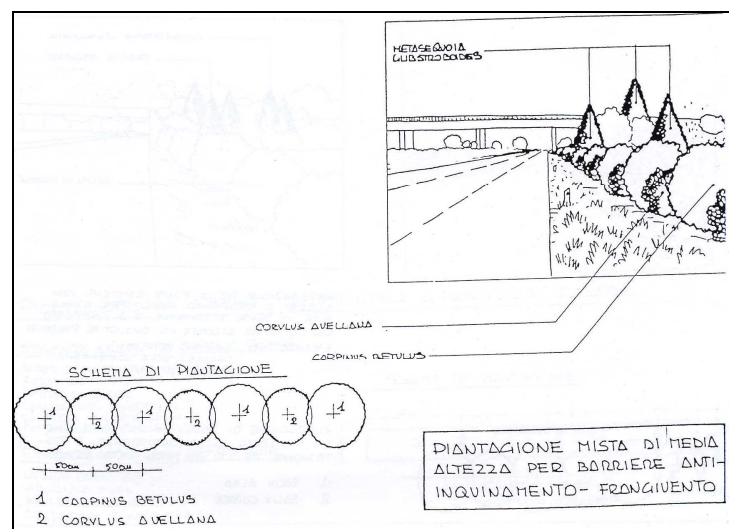 METASEQUOIA
GLIBSTROBOIDES
CORYLUS AVELLANA
CARPINUS BETULUS
SCHEMA DI PIANTAGIONE
1 2 1 2 1 2 1
50cm 50cm
1 CARPINUS BETULUS
2 CORYLUS AVELLANA
PIANTAGIONE MISTA DI MEDIA
ALTEZZA PER BARRIERE ANTI-
INQUINAMENTO - FRANGIVENTO